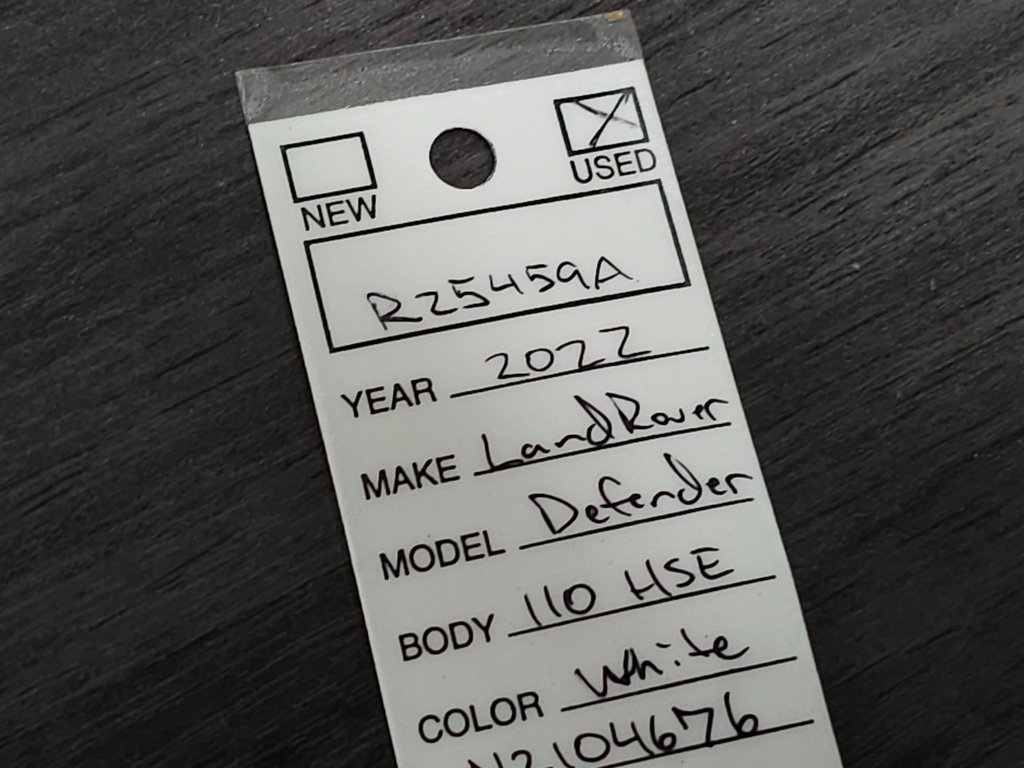 NEW USED
R25459A
YEAR 2022
MAKE Land Rover
MODEL Defender
BODY 110 HSE
COLOR White
N2104676